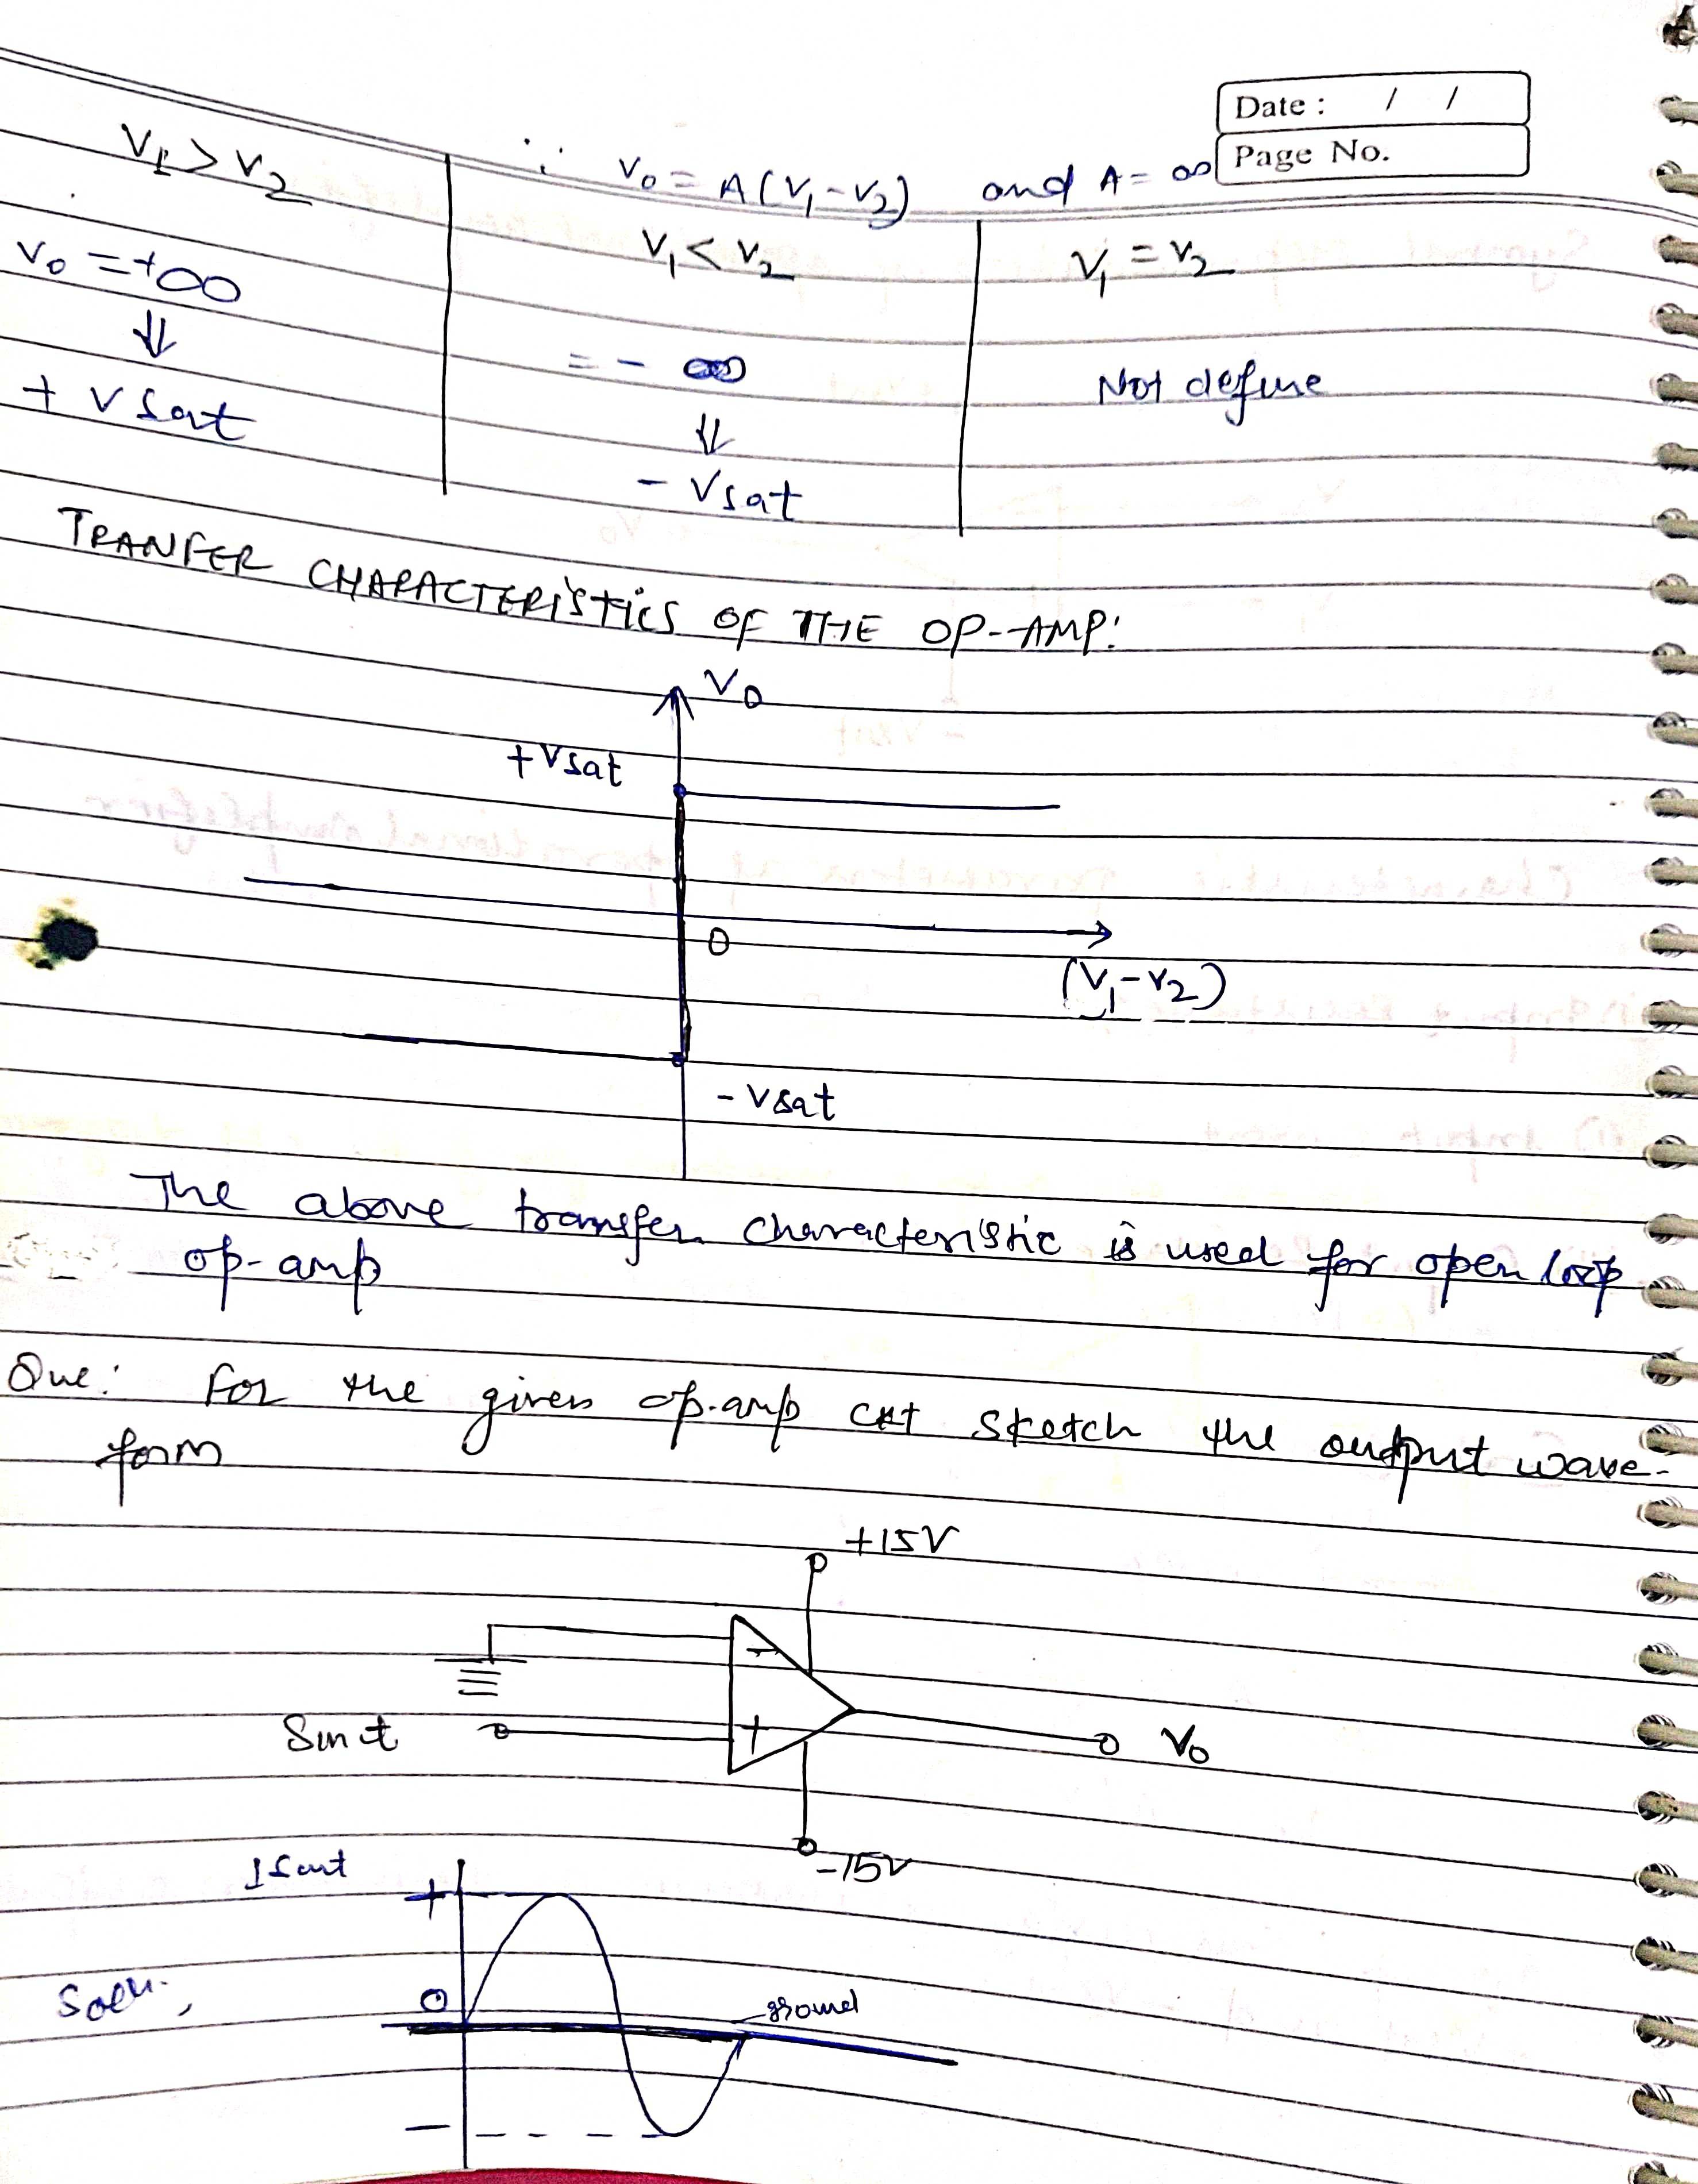 Date : / /
Page No.
∵ V₀ = A(V₁-V₂) and A = ∞
V₁ > V₂
V₁ < V₂
V₁ = V₂
V₀ = +∞
= - ∞
Not define
⇓
+ Vsat
⇓
- Vsat
TRANFER CHARACTERISTICS OF THE OP-AMP:
V₀
+Vsat
0
(V₁-V₂)
-Vsat
The above transfer characteristic is used for open loop
op-amp
Que: For the given op-amp ckt sketch the output wave-
form
+15V
-
Sin t
+
V₀
-15V
+
Soln.
0
ground
-